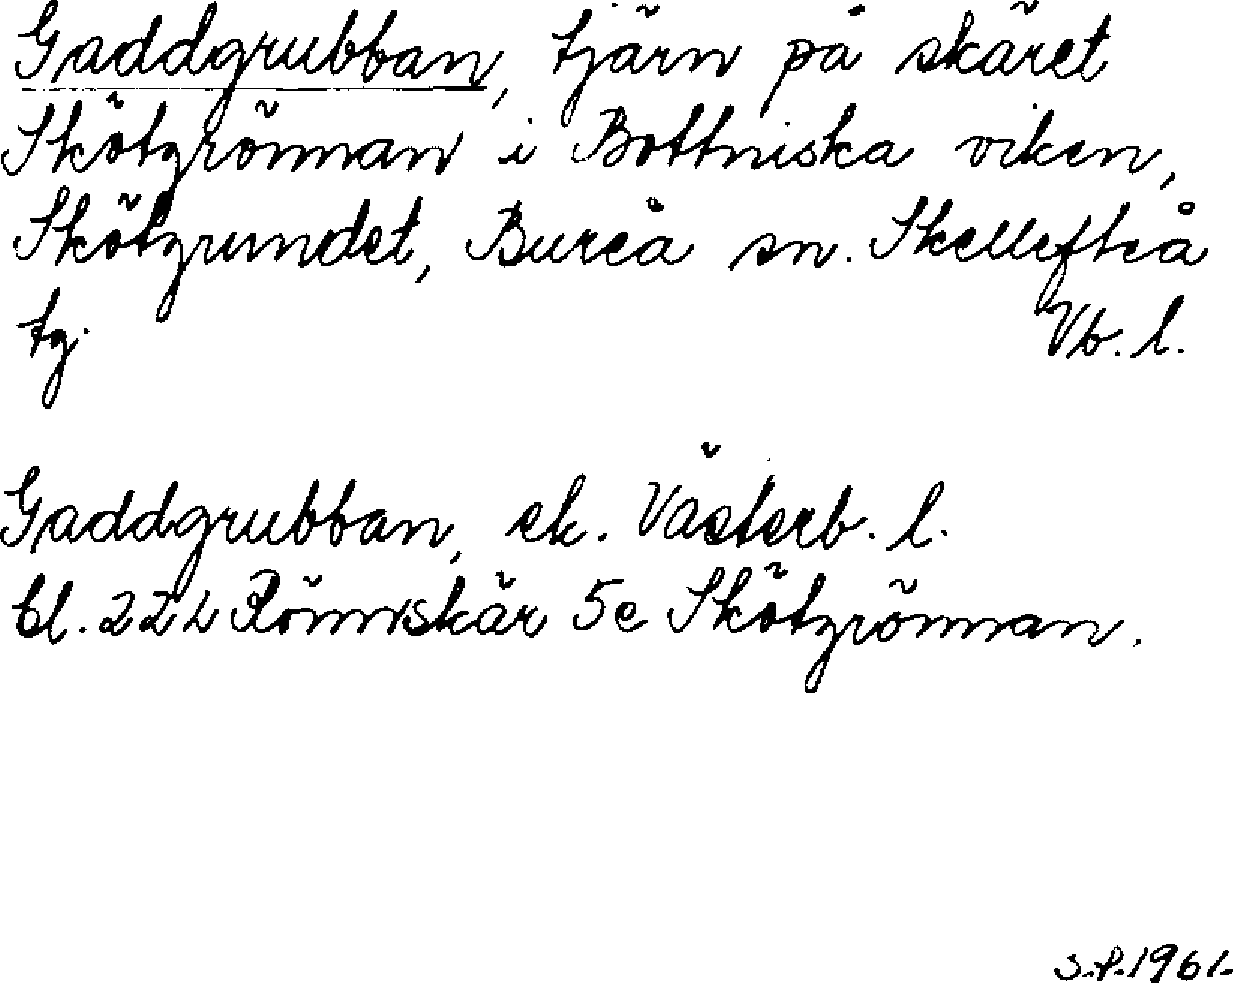 Gaddgrubban, tjärn på skäret
Skötgrönnan i Bottniska viken,
Skötgrundet, Bureå sn. Skellefteå
tg. Vb. l.
Gaddgrubban, ek. Västerb. l.
bl. 22 L Rönnskär 5e Skötgrönnan.
S.P. 1961.